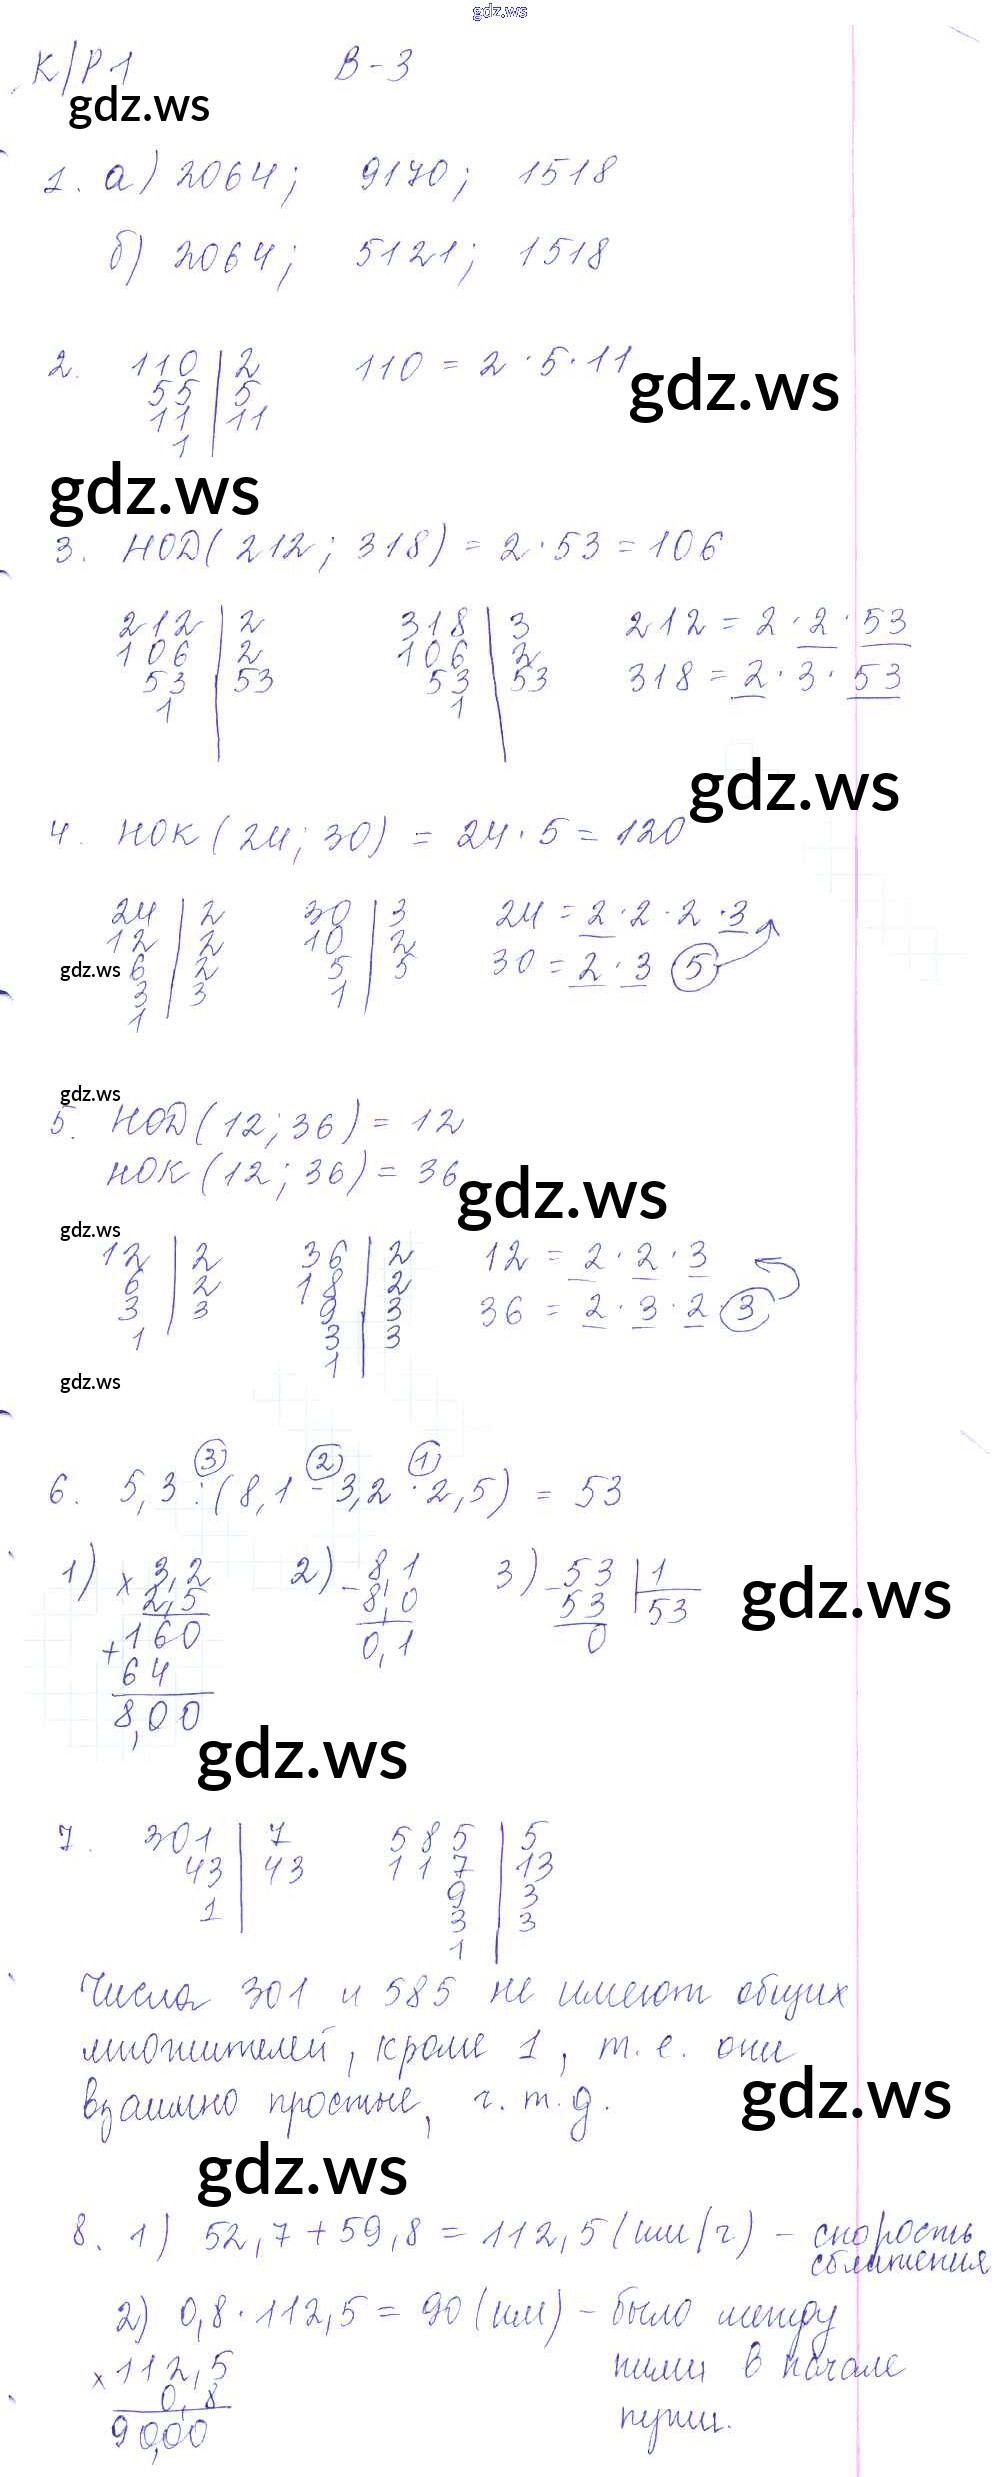 gdz.ws
К/Р1 В-3
gdz.ws
1. а) 2064; 9170; 1518
б) 2064; 5121; 1518
2. 110 | 2 110 = 2 · 5 · 11
55 | 5
11 | 11
1
gdz.ws
gdz.ws
3. НОД( 212; 318) = 2 · 53 = 106
212 | 2 318 | 3 212 = 2 · 2 · 53
106 | 2 106 | 2 318 = 2 · 3 · 53
53 | 53 53 | 53
1 1
gdz.ws
4. НОК (24; 30) = 24 · 5 = 120
24 | 2 30 | 3 24 = 2 · 2 · 2 · 3
12 | 2 10 | 2 30 = 2 · 3 5
gdz.ws 6 | 2 5 | 5
3 | 3 1
1
gdz.ws
5. НОД (12; 36) = 12
НОК (12; 36) = 36
gdz.ws
gdz.ws
12 | 2 36 | 2 12 = 2 · 2 · 3
6 | 2 18 | 2 36 = 2 · 3 · 2 · 3
3 | 3 9 | 3
1 3 | 3
1
gdz.ws
3 2 1
6. 5,3 : (8,1 - 3,2 · 2,5) = 53
1) × 3,2 2) - 8,1 3) - 53 | 1
2,5 8,0 53 | 53
+ 160 0,1 0
64
8,00
gdz.ws
gdz.ws
7. 301 | 7 585 | 5
43 | 43 117 | 13
1 9 | 3
3 | 3
1
Числа 301 и 585 не имеют общих
множителей, кроме 1, т.е. они
взаимно простые, ч.т.д.
gdz.ws
gdz.ws
8. 1) 52,7 + 59,8 = 112,5 (км/ч) - скорость
сближения
2) 0,8 · 112,5 = 90 (км) - было между
× 112,5 ними в начале
0,8 пути.
90,00